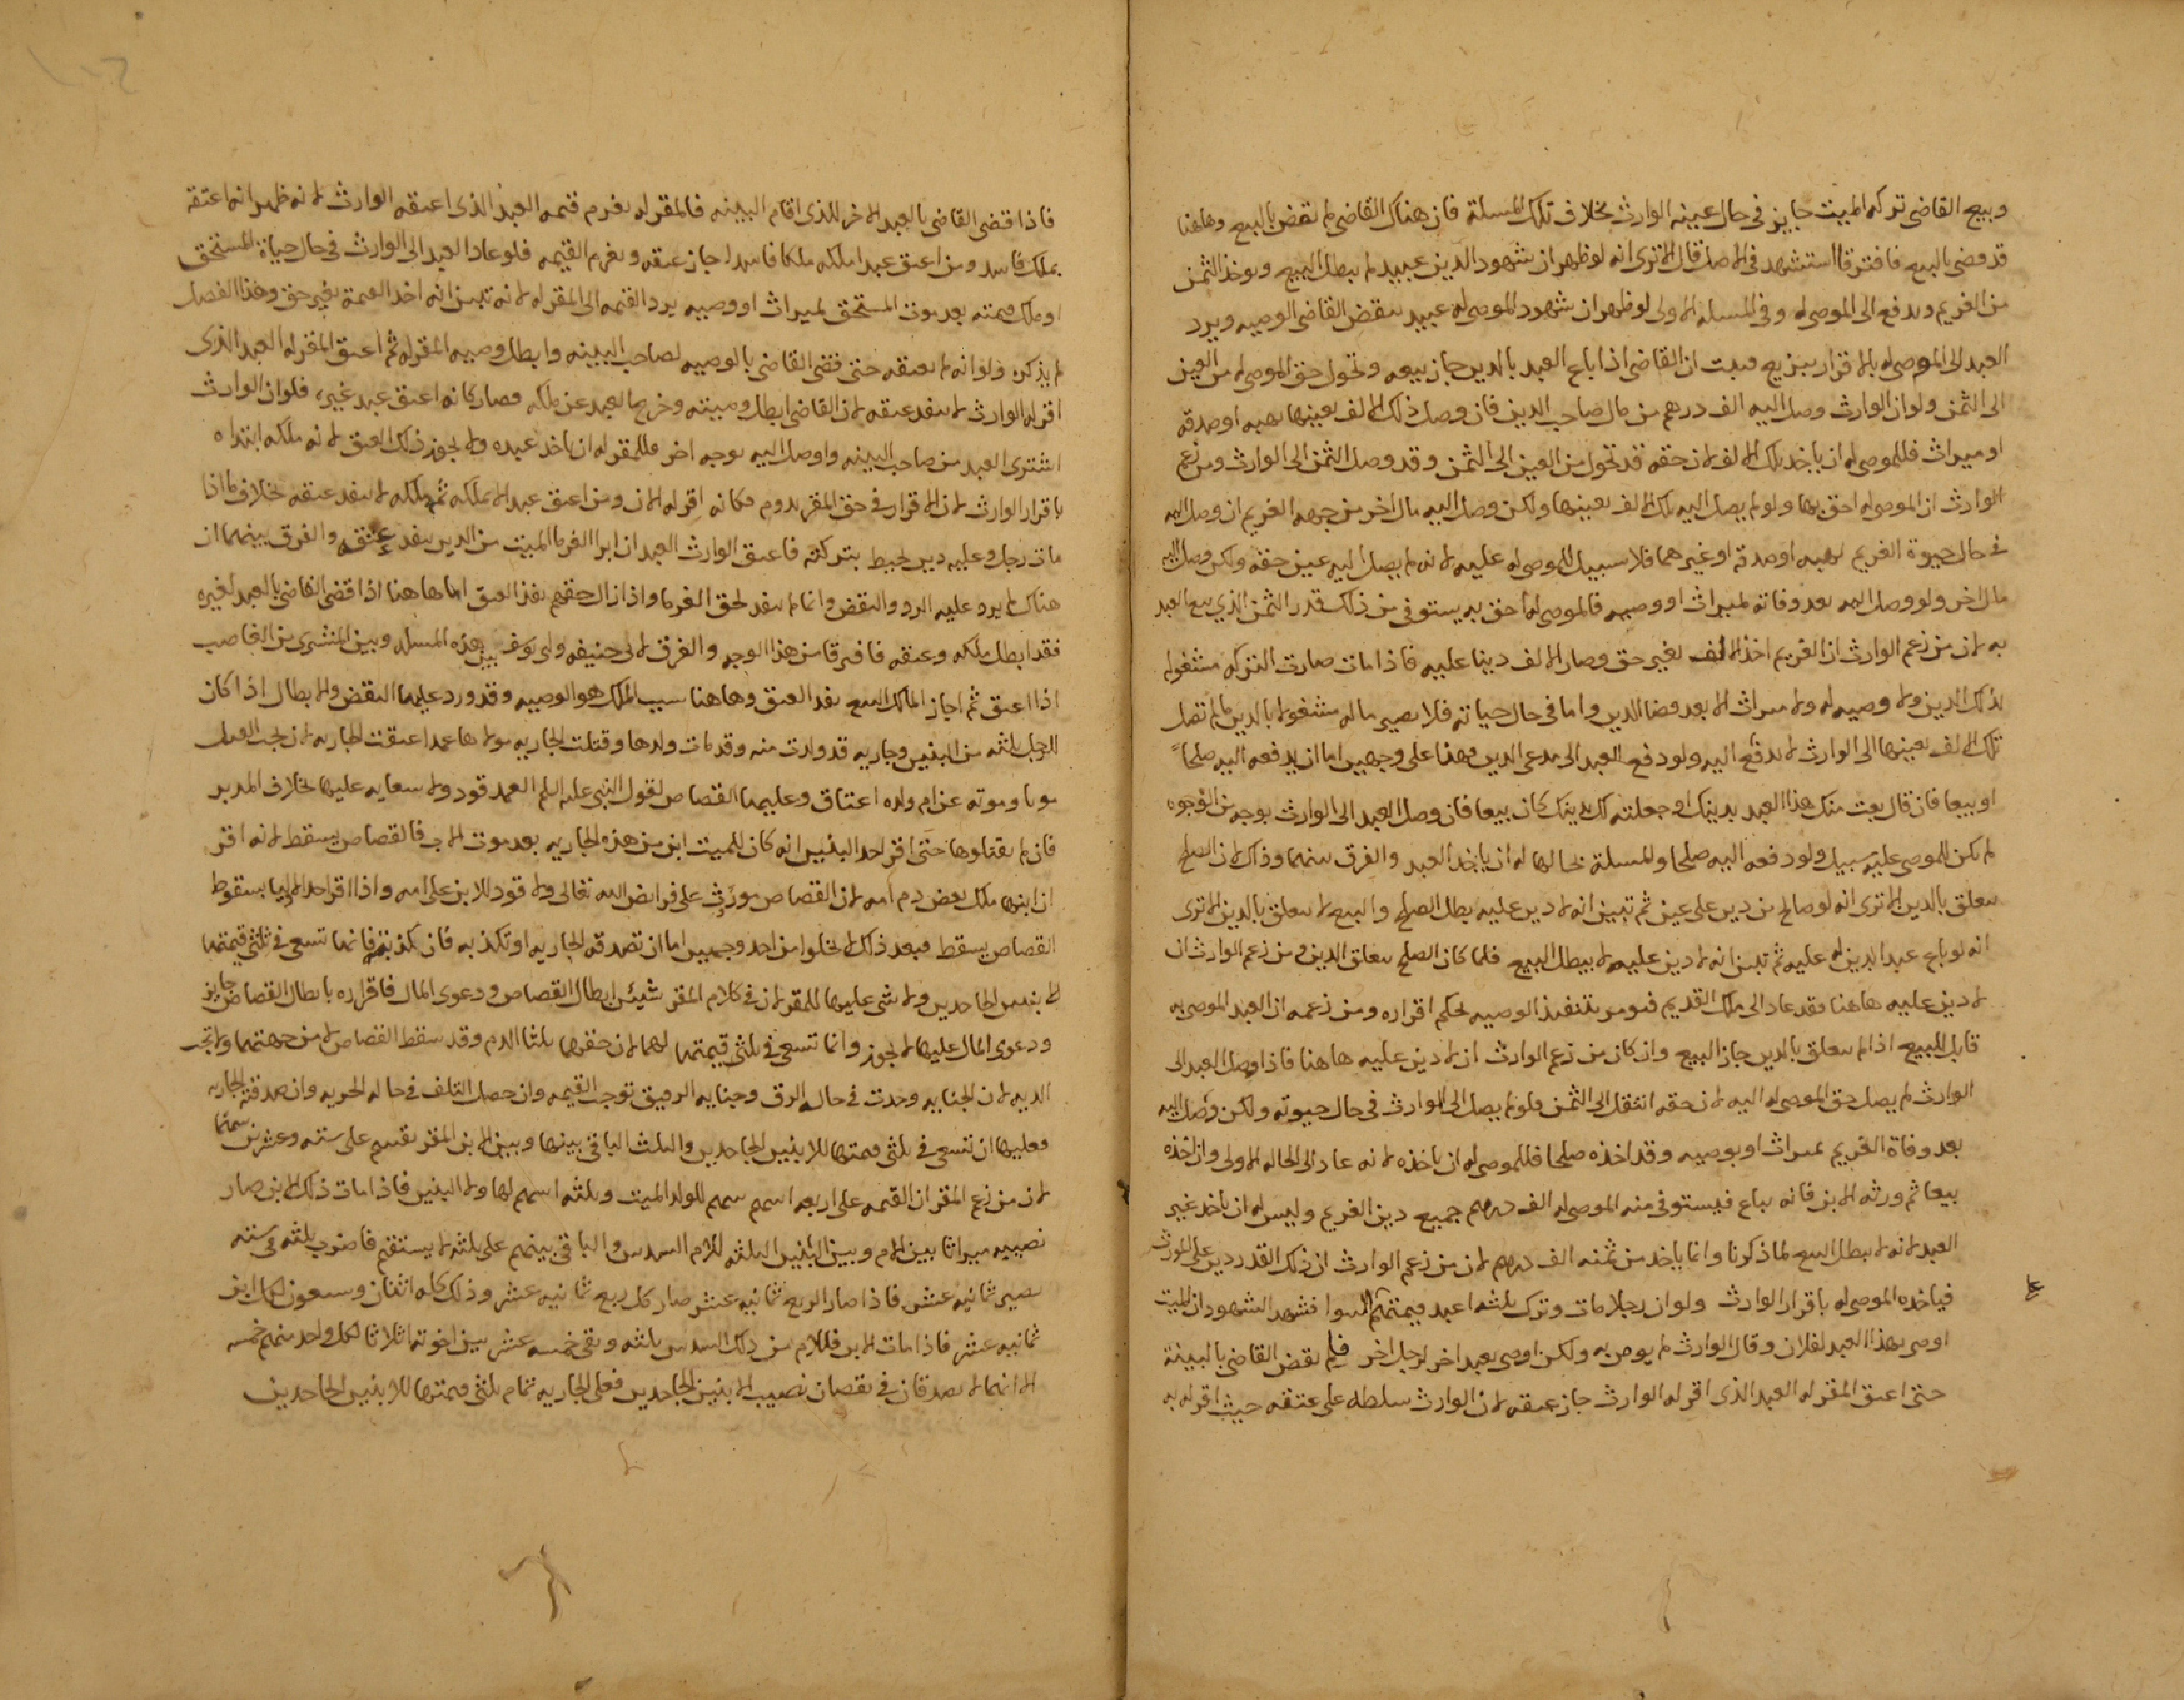 وبيع القاضي تركه الميت جايز في حال عيبه الوارث بخلاف تلك المسلة فان هناك القاضي لم يقض بالبيع وهاهنا
قد قضى بالبيع فافترقا استشهد في الاصل قال الا ترى انه لو ظهر ان شهود الدين عبيد لم يبطل البيع ويوخذ الثمن
من الغريم ويدفع الى الموصى له وفي المسله الاولى لو ظهر ان شهود الموصى له عبيد ينقض القاضي الوصيه ويرد
العبد الى الموصى له بالاقرار بيع فيت ان القاضي اذا باع العبد بالدين جاز بيعه وتحول حق الموصى له من العين
الى الثمن ولو ان الوارث وصل اليه الف درهم من مال صاحب الدين فان وصل ذلك الالف بعينها بهبه او صدقه
او ميراث فللموصى له ان ياخذ تلك الالف لان حقه قد تحول من العين الى الثمن وقد وصل الثمن الى الوارث ومن زعم
الوارث ان الموصى له احق بها ولو لم يصل اليه تلك الالف بعينها ولكن وصل اليه مال اخر من جهه الغريم ان وصل اليه
في حال حيوة الغريم بهبه او صدقه او غيرهما فلا سبيل للموصى له عليه لانه لم يصل اليه عين حقه ولكن وصل اليه
مال اخر ولو وصل اليه بعد وفاته لميراث او وصيه فالموصى له احق به يستوفي من ذلك قدر الثمن الذي بيع العبد
به لان من زعم الوارث ان الغريم اخذ الالف بغير حق وصار الالف دينا عليه فاذا مات صارت التركه مشغوله
بذلك الدين ولا وصيه له ولا ميراث الا بعد قضا الدين واما في حال حياته فلا يصير ماله مشغولا بالدين فما لم تصل
تلك الالف بعينها الى الوارث لا يدفع اليه ولو دفع العبد الى مدعي الدين فهذا على وجهين اما ان يدفعه اليه صلحا
او بيعا فان قال بعت منك هذا العبد بدينك او جعلته لك بدينك كان بيعا فان وصل العبد الى الوارث بوجه من الوجوه
لم يكن للموصى عليه سبيل ولو دفعه اليه صلحا والمسلة بحالها له ان ياخذ العبد والفرق بينهما وذاك لان الصلح
يتعلق بالدين الا ترى انه لو صالح من دين على عين ثم تبين انه لا دين عليه بطل الصلح والبيع لا يتعلق بالدين الا ترى
انه لو باع عبدا بدين له عليه ثم تبين انه لا دين عليه لا يبطل البيع فلما كان الصلح يتعلق بالدين ومن زعم الوارث ان
لا دين عليه هاهنا فقد عاد الى ملك القديم فيومر بتنفيذ الوصيه لحكم اقراره ومن زعمه ان العبد الموصى به
قابل للبيع اذا لم يتعلق بالدين جاز البيع وان كان من زعم الوارث ان لا دين عليه هاهنا فاذا وصل العبد الى
الوارث لم يصل حق الموصى له اليه لان حقه انتقل الى الثمن ولو لم يصل الى الوارث في حال حيوته ولكن وصل اليه
بعد وفاة الغريم بميراث او بوصيه وقد اخذه صلحا فللموصى له ان ياخذه لانه عاد الى الحاله الاولى وان اخذه
بيعا ثم ورثه الابن فانه يباع فيستوفي منه الموصى له الف درهم جميع دين الغريم وليس له ان ياخذ غير
العبد لانه لا يبطل البيع لما ذكرنا وانما ياخذ من ثمنه الف درهم لان من زعم الوارث ان ذلك القدر دين على المورث
فياخذه الموصى له باقرار الوارث ولو ان رجلا مات وترك ثلثه اعبد قيمتهم السوا فشهد الشهود ان الميت
اوصى بهذا العبد لفلان وقال الوارث لم يوص به ولكن اوصى بعبد اخر لرجل اخر فلم يقض القاضي بالبينة
حتى اعتق المقر له العبد الذي اقر له الوارث جاز عتقه لان الوارث سلطه على عتقه حيث اقر له به
فاذا قضى القاضي بالعبد الاخر للذي اقام البينه فالمقر له يغرم قيمه العبد الذي اعتقه الوارث لانه ظهر انه اعتقه
بملك فاسد ومن اعتق عبدا ملكه ملكا فاسدا جاز عتقه ويغرم القيمه فلو عاد العبد الى الوارث في حال حياة المستحق
او ملك قيمته بعد موت المستحق لميراث او وصيه يرد القيمه الى المقر له لانه تبين انه اخذ القيمة بغير حق وهذا الفصل
لم يذكره ولو انه لم يعتقه حتى قضى القاضي بالوصيه لصاحب البينه وابطل وصيه المقر له ثم اعتق المقر له العبد الذي
اقر له الوارث لا ينفد عتقه لان القاضي ابطل وصيته وخرج العبد عن ملكه فصار كانه اعتق عبد غيره فلو ان الوارث
اشترى العبد من صاحب البينه او وصل اليه بوجه اخر فللمقر له ان ياخذ عبده ولا يجوز ذلك العتق لانه ملكه ابتداء
باقرار الوارث لان الاقرار في حق المقر يدوم فكانه اقر له الان ومن اعتق عبدا لا يملكه ثم ملكه لا ينفد عتقه خلاف ما اذا
مات رجل وعليه دين يحيط بتركته فاعتق الوارث العبد ان ابرا الغرما الميت من الدين ينفد عتقه والفرق بينهما ان
هناك لم يرد عليه الرد والنقض وانما لم ينفد لحق الغرما واذا زال حقهم نفذ العتق اما هاهنا اذا قضى القاضي بالعبد لغيره
فقد ابطل ملكه وعتقه فافترقا من هذا الوجه والفرق لابي حنيفه وابي يوسف بين هذه المسله وبين المشتري من الغاصب
اذا اعتق ثم اجاز المالك البيع نفد العتق وهاهنا سبب الملك هو الوصيه وقد ورد عليها النقض والابطال اذا كان
للرجل ثلثه من البنين وجاريه قد ولدت منه وقد مات ولدها وقتلت الجاريه مولاها عمدا عتقت الجاريه لان يجب القتل
موتا وموته عن ام ولده اعتاق وعليها القصاص لقول النبي عليه السلم العمد قود ولا سعايه عليها بخلاف المدبر
فان لم يقتلوها حتى اقر احد البنين انه كان للميت ابن من هذه الجاريه بعد موت الاب فالقصاص يسقط لانه اقر
ان ابنها ملك بعض دم امه لان القصاص مورث على فرايض الله تعالى ولا قود للابن على امه واذا اقر احد الاوليا بسقوط
القصاص يسقط فبعد ذلك لا يخلوا من احد وجهين اما ان تصدقه الجاريه او تكذبه فان كذبته فانها تسعى في ثلثي قيمتها
للابنين الجاحدين ولا شي عليها للمقر لان في كلام المقر شيئين ابطال القصاص ودعوى المال فاقراره بابطال القصاص جايز
ودعوى المال عليها لا يجوز وانما تسعى في ثلثي قيمتها لهما لان حقهما ثلثا الدم وقد سقط القصاص لا من جهتهما ولا تجب
الديه لان الجنايه وجدت في حال الرق وجنايه الرقيق توجب القيمه وان حصل التلف في حاله الحريه وان صدقته الجاريه
فعليها ان تسعى في ثلثي قيمتها للابنين الجاحدين والثلث الباقي بينها وبين الابن المقر يقسم على سته وعشرين سهما
لان من زعم المقر ان القيمه على اربعه اسهم سهم للولد الميت وثلثه اسهم لها ولا البنين فاذا مات ذلك الابن صار
نصيبه ميراثا بين الام وبين البنين الثلثه للام السدس والباقي بينهم على ثلثه لا يستقيم فاضرب ثلثه في سته
يصير ثمانيه عشر فاذا صار الربع ثمانيه عشر صار كل ربع ثمانيه عشر وذلك كله اثنان وسبعون لكل ابن
ثمانيه عشر فاذا مات الابن فللام من ذلك السدس ثلثه وبقي خمسه عشر بين اخوته اثلاثا لكل واحد منهم خمسه
الا انهما لا يصدقان في نقصان نصيب الابنين الجاحدين فعلى الجاريه تمام ثلثي قيمتها للابنين الجاحدين